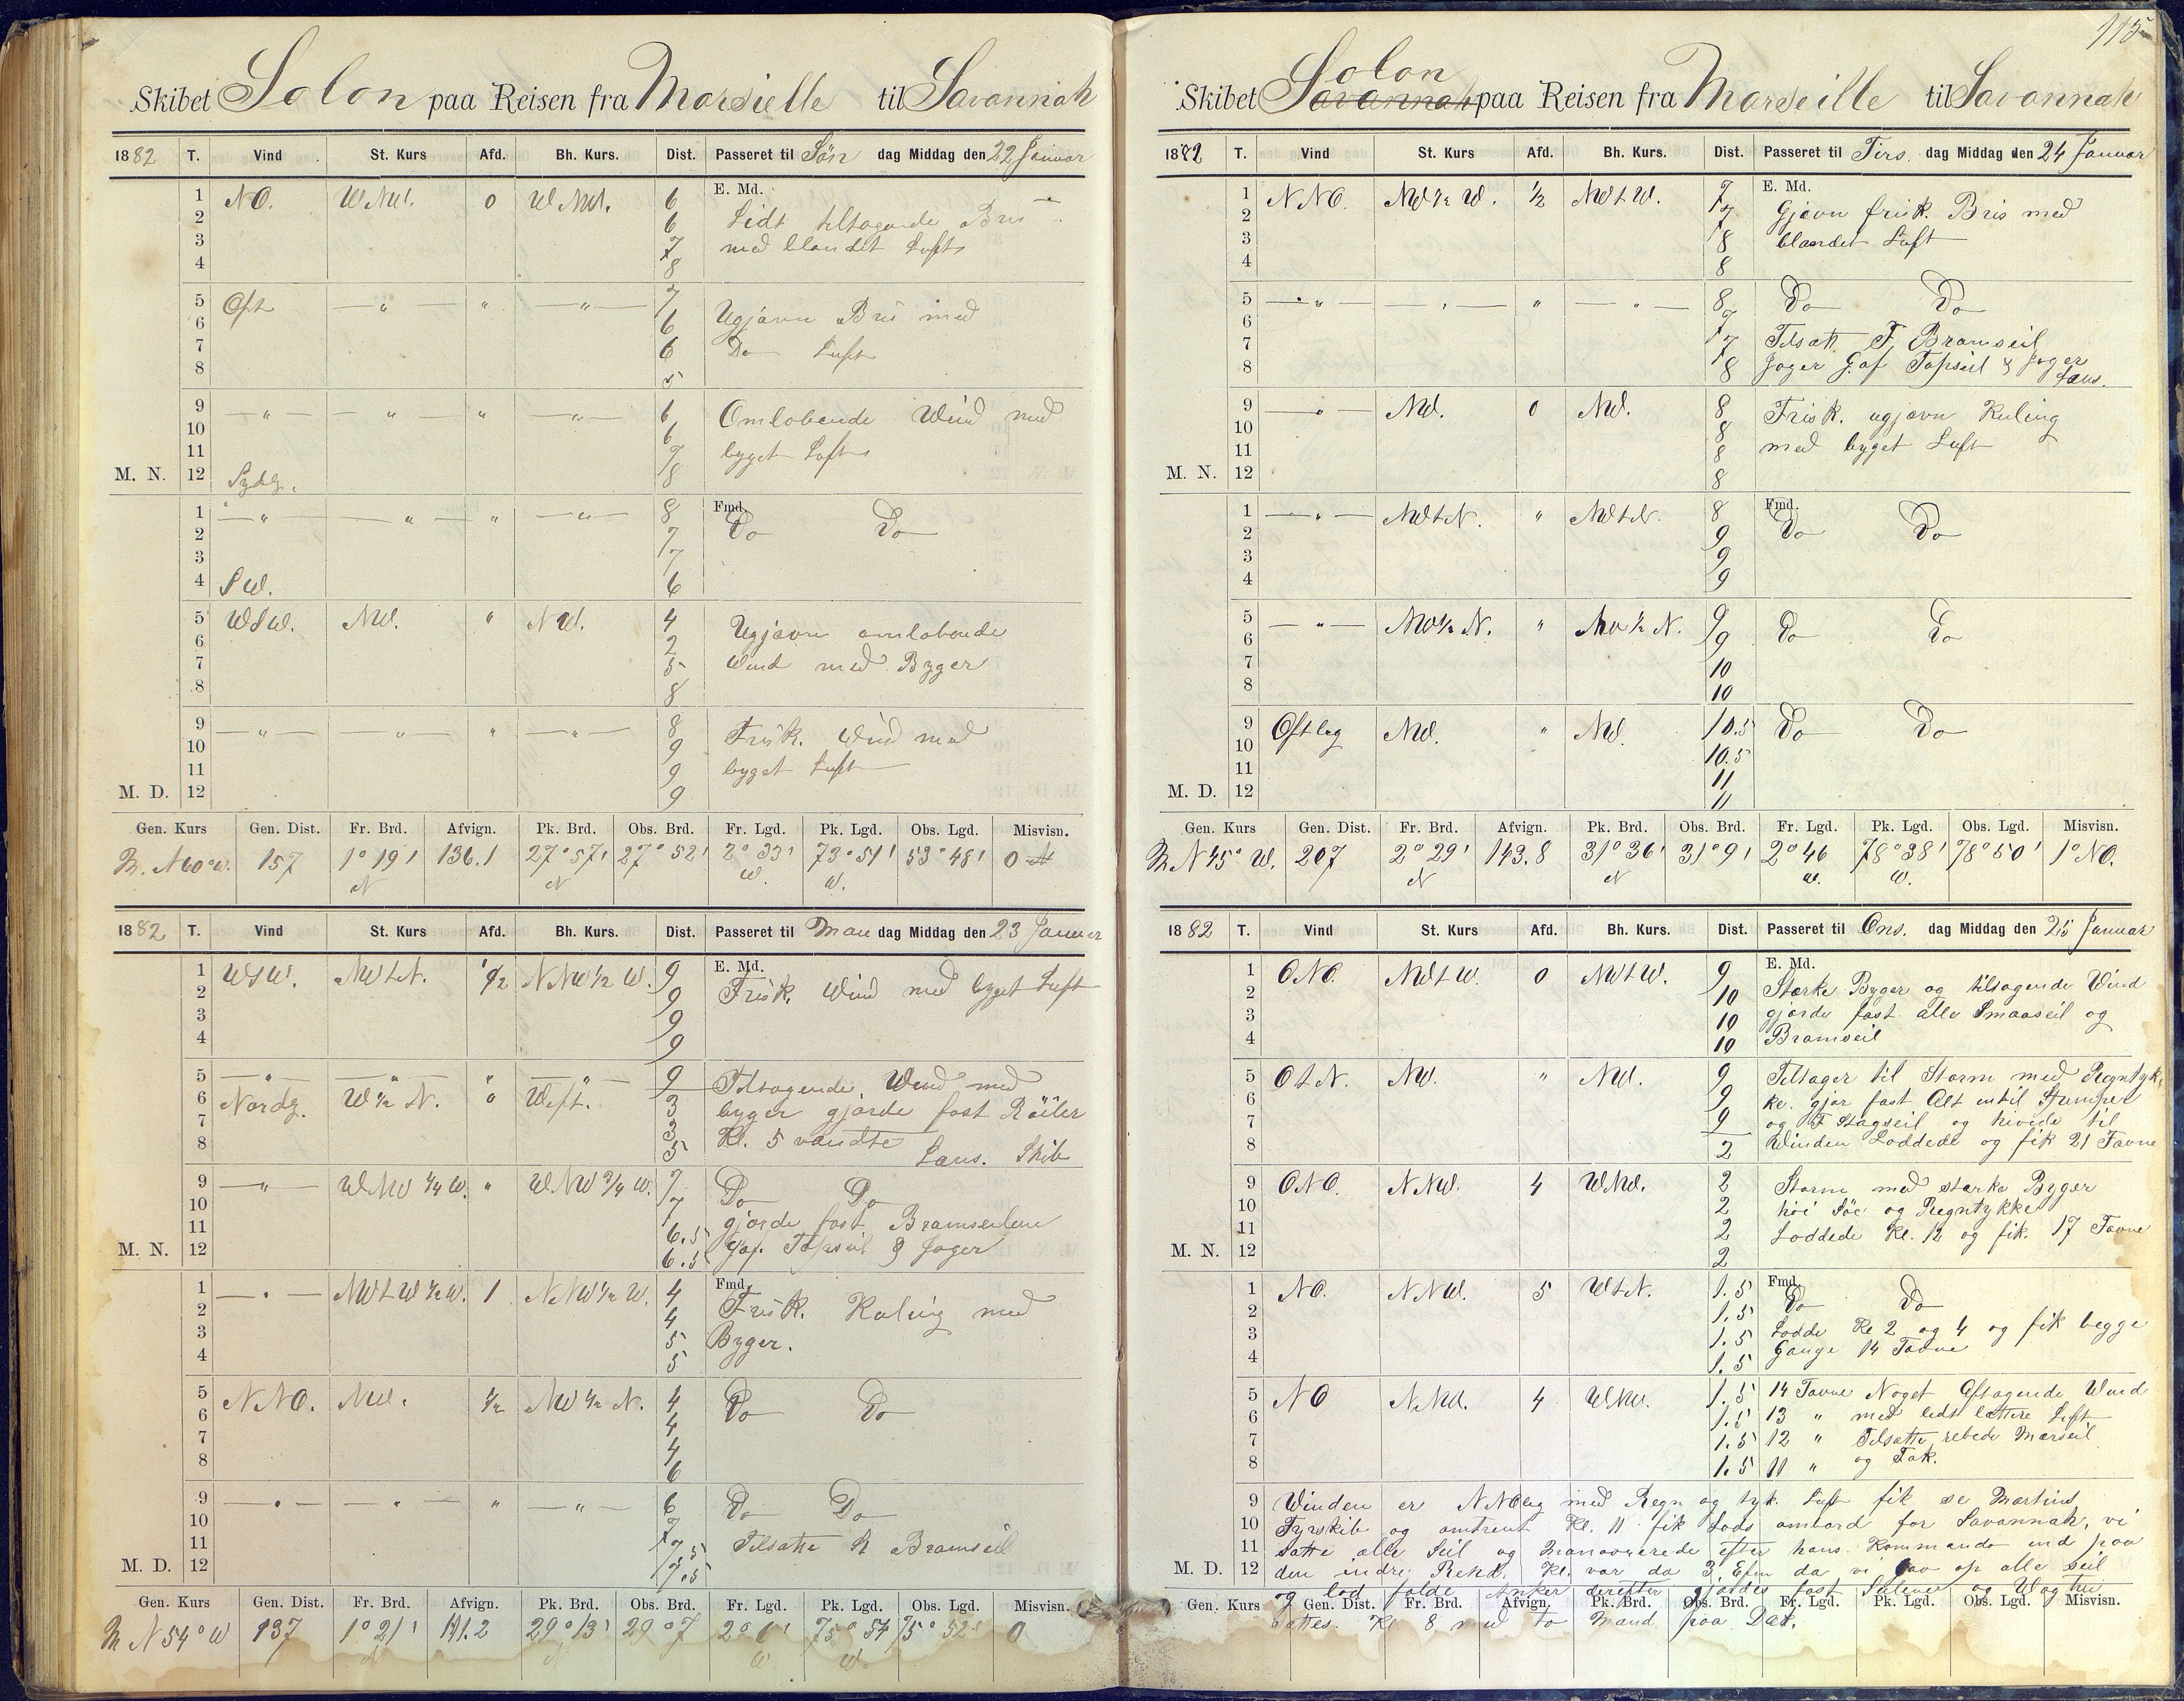 Skibet Solon paa Reisen fra Marsielle til Savannah
1882 T. Vind St. Kurs Afd. Bh. Kurs. Dist. Passeret til Søn dag Middag den 22 Januar
E. Md.
1 NO. WNW. 0 WNW. 6
2 6 Lidt tiltagende Bris
3 7 med blandet Luft
4 8
5 Ost " " " 7
6 6 Ugjævn Bris med
7 6 Do Luft
8 5
9 " " " " 6 Omløbende Wind med
10 6
11 7 byget Luft
M. N. 12 Sydlg. 8
Fmd.
1 " " " " 8 Do Do
2 7
3 7
4 SW. 6
5 WSW. NW. " NW. 4 Ugjævn omløbende
6 2
7 5 Wind med Byger
8 8
9 " " " " 8 Frisk Wind med
10 9
11 9 byget Luft
M. D. 12 9
Gen. Kurs Gen. Dist. Fr. Brd. Afvign. Pk. Brd. Obs. Brd. Fr. Lgd. Pk. Lgd. Obs. Lgd. Misvisn.
N60°W. 157 1°19' N 136.1 27°57' N 27°52' 2°33' W. 73°51' W. 53°48' 0
1882 T. Vind St. Kurs Afd. Bh. Kurs. Dist. Passeret til Man dag Middag den 23 Januar
E. Md.
1 WSW. NWtN. 1/2 NNW1/2W. 9
2 9 Frisk Wind med byget Luft
3 9
4 9
5 " " " " 9 Tiltagende Wind med
6 Nordlg. W1/2N. 0 West. 3 byger gjorde fast Röiler
7 3 Kl. 5 vendte
8 5 Laus. Skib
9 " WNW1/4W. " WNW3/4W. 7 Do Do
10 7 gjorde fast Bramseilene
11 6.5 Gaf. Topseil & Jager
M. N. 12 6.5
Fmd.
1 " NWtW1/2W. 1 NNW1/2W. 4 Frisk. Kuling med
2 4
3 5 Byger.
4 5
5 NNO. NW. 1/2 NW1/2N. 4 Do Do
6 4
7 4
8 6
9 " " " " 6 Do Do
10 7
11 7.5 Tilsatte Bramseil
M. D. 12 7.5
Gen. Kurs Gen. Dist. Fr. Brd. Afvign. Pk. Brd. Obs. Brd. Fr. Lgd. Pk. Lgd. Obs. Lgd. Misvisn.
N54°W 137 1°21' 111.2 29°13' 29°7 2°6' W 75°54 W. 75°52' 0
115
Skibet Solon Savannah paa Reisen fra Marseille til Savannah
1882 T. Vind St. Kurs Afd. Bh. Kurs. Dist. Passeret til Tirs. dag Middag den 24 Januar
E. Md.
1 NNO. NW1/2W. 1/2 NWtW. 7
2 7 Gjævn frisk. Bris med
3 8 blandet Luft
4 8
5 " " " " 8 Do Do
6 7
7 7 Tilsatt F. Bramseil
8 8 Jager Gaf Topseil & Jager
Laus.
9 " NW. 0 NW. 8 Frisk. ugjævn Kuling
10 8
11 8 med byget Luft
M. N. 12 8
Fmd.
1 " NWtN. " NWtN. 8 Do Do
2 9
3 9
4 9
5 " NW1/2N. " NW1/2N. 9
6 9 Do Do
7 10
8 10
9 Ostleg NW. " NW. 10.5 Do Do
10 10.5
11 11
M. D. 12 11
Gen. Kurs Gen. Dist. Fr. Brd. Afvign. Pk. Brd. Obs. Brd. Fr. Lgd. Pk. Lgd. Obs. Lgd. Misvisn.
N45°W. 207 2°29' N 143.8 31°36' N 31°9' 2°46 W. 78°38' W. 78°50' 1°NO.
1882 T. Vind St. Kurs Afd. Bh. Kurs. Dist. Passeret til Ons. dag Middag den 25 Januar
E. Md.
1 ONO. NWtW. 0 NWtW. 9
2 10 Stærke Byger og tiltagende Wind
3 10 gjorde fast alle Smaaseil og
4 10 Bramseil
5 OtN. NW. " NW. 9 Tiltager til Storm med Regntyk-
6 9 ke. gjør fast Alt intil Stumper
7 9 og F Stagseil og hivede til
8 2 Winden Loddede og fik 21 Favne
9 ONO. NNW. 4 WNW. 2 Storm med stærke Byger
10 2 höi Söe og Regntykke
11 2 Loddede Kl. 12 og fik. 17 Favne
M. N. 12 2
Fmd.
1 NO. NNW. 5 WtN. 1.5 Do Do
2 1.5
3 1.5 Lodde Kl 2 og 4 og fik begge
4 1.5 Gange 14 Favne
5 NO NNW. 4 WNW. 1.5 14 Favne Noget Aftagende Wind
6 1.5 13 " med lidt lættere Luft
7 1.5 12 " Tilsatte rebede Mærseil
8 1.5 11 " og Fok.
9 Winden er NNOlig med Regn og tyk. Luft fik se Martins
10 Fyrskib og omtrent Kl. 11 fik Lods ombord for Savannah, vi
11 satte alle Seil og manøvrerede efter hans Kommando ind paa
M. D. 12 den indre Rehd. Kl. var da 3 Efm da vi gav op alle seil
og lod falde Anker derefter gjordes fast Seilene og Wagten
Gen. Kurs Gen. Dist. Fr. Brd. Afvign. Pk. Brd. Obs. Brd. Fr. Lgd. Pk. Lgd. Obs. Lgd. Misvisn.
sattes. Kl 8 med to Mand paa Dæk.